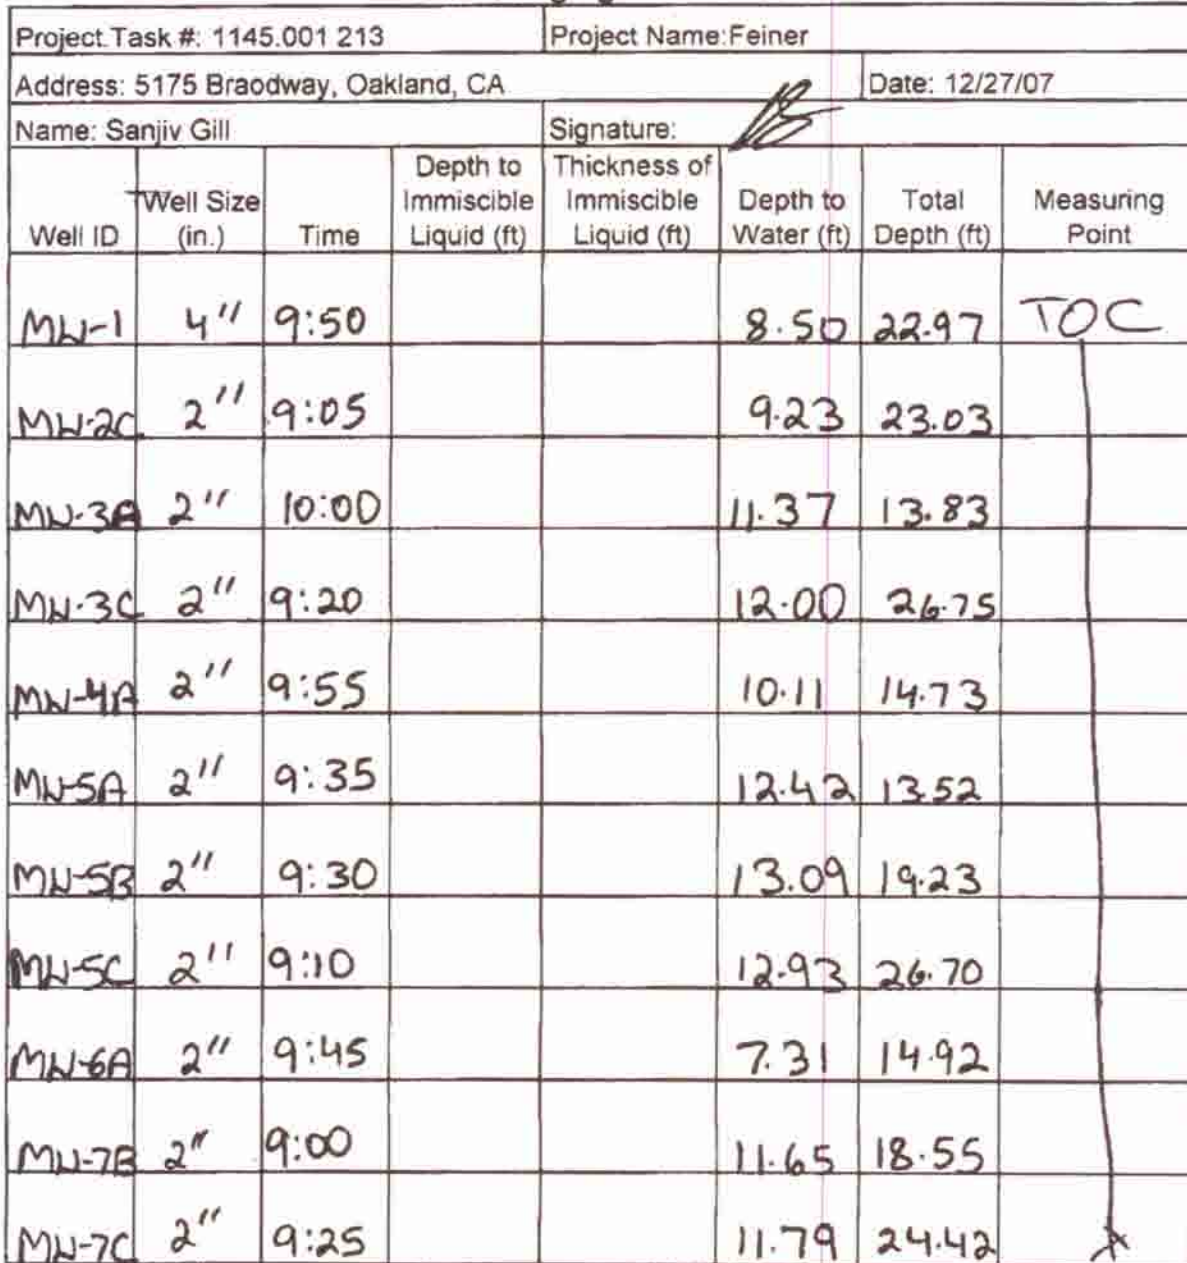 Project Task #: 1145.001 213 Project Name: Feiner
Address: 5175 Braodway, Oakland, CA Date: 12/27/07
Name: Sanjiv Gill Signature:
Well ID Well Size (in.) Time Depth to Immiscible Liquid (ft) Thickness of Immiscible Liquid (ft) Depth to Water (ft) Total Depth (ft) Measuring Point
MW-1 4" 9:50 8.50 22.97 TOC
MW-2C 2" 9:05 9.23 23.03
MW-3A 2" 10:00 11.37 13.83
MW-3C 2" 9:20 12.00 26.75
MW-4A 2" 9:55 10.11 14.73
MW-5A 2" 9:35 12.42 13.52
MW-5B 2" 9:30 13.09 19.23
MW-5C 2" 9:10 12.93 26.70
MW-6A 2" 9:45 7.31 14.92
MW-7B 2" 9:00 11.65 18.55
MW-7C 2" 9:25 11.79 24.42